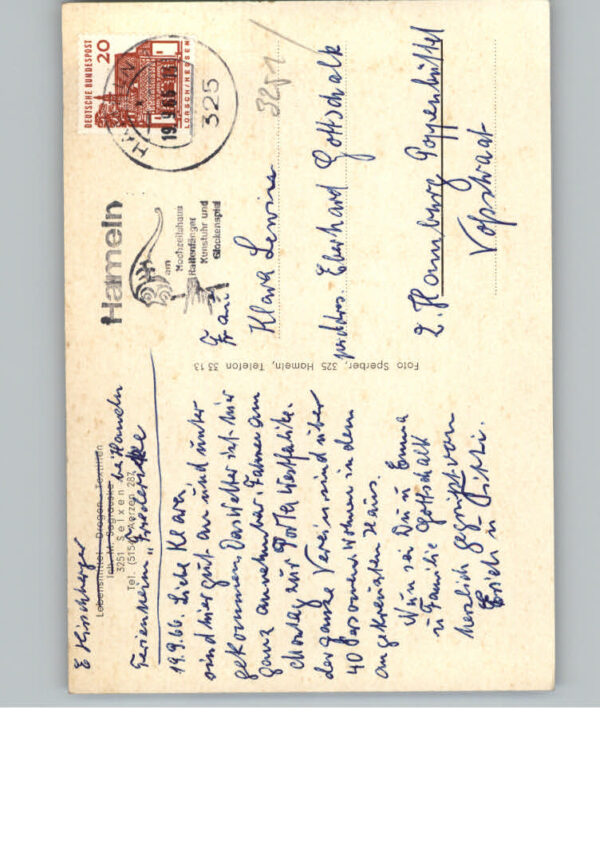 E Kirschberger
Lebensmittel Drogen Textilien
3251 Selxen bei Hameln
Tel. (5154) Aerzen 287
Ferienheim "Friederike"
19.9.66. Liebe Klara,
sind hier gut an und unter
gekommen. Das Wetter ist hir
ganz annehmbar. Fahren am
Montag zur Porta Westfalika.
der ganze Verein sind über
40 Personen. Wohnen in dem
angekreuzten Haus.
Nun sei Du u Emma
u Familie Gottschalk
herzlich gegrüßt von
Erich u
Foto Sperber, 325 Hameln, Telefon 33 13
Hameln
am
Hochzeitshaus
Rattenfänger
Kunstuhr und
Glockenspiel
DEUTSCHE BUNDESPOST
20
LORSCH/HESSEN
HAMELN
19.9.66
325
3251
Frau
Klara Lewin
Eberhard Gottschalk
2. Hamburg Poppenbüttel
Vossstraat